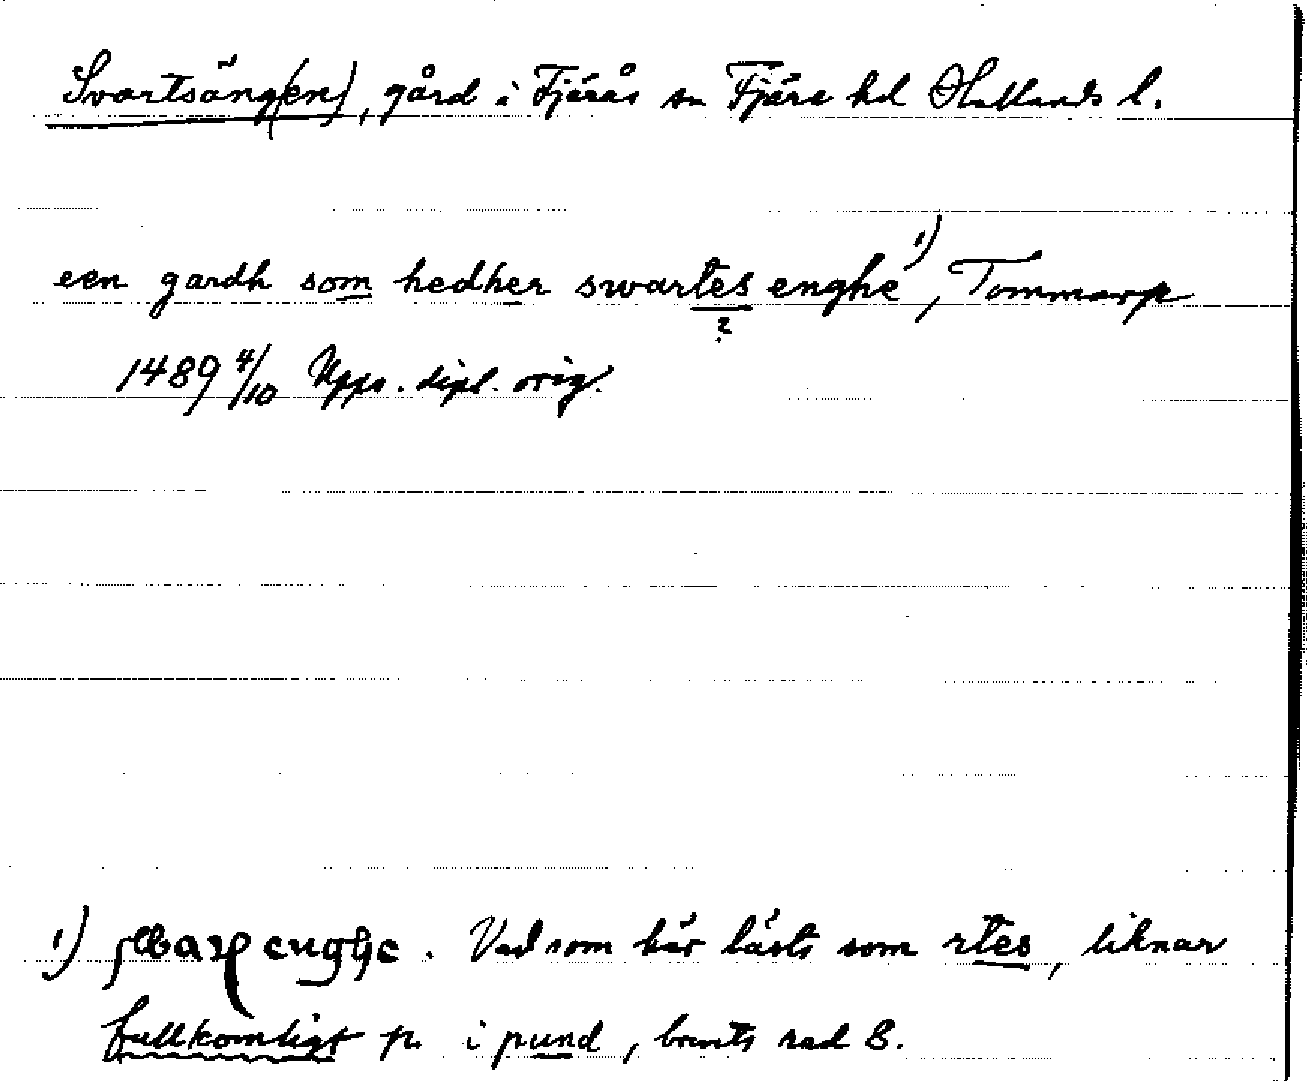 Svartsäng(en), gård i Fjärås sn Fjäre hd Hallands l.
een gardh som hedher swartes enghe 1), Tommarp
?
1489 4/10 Upps. dipl. orig.
1) enghe. Vad som här lästs som rtes, liknar
fullkomligt p. i pund, brevets rad 8.